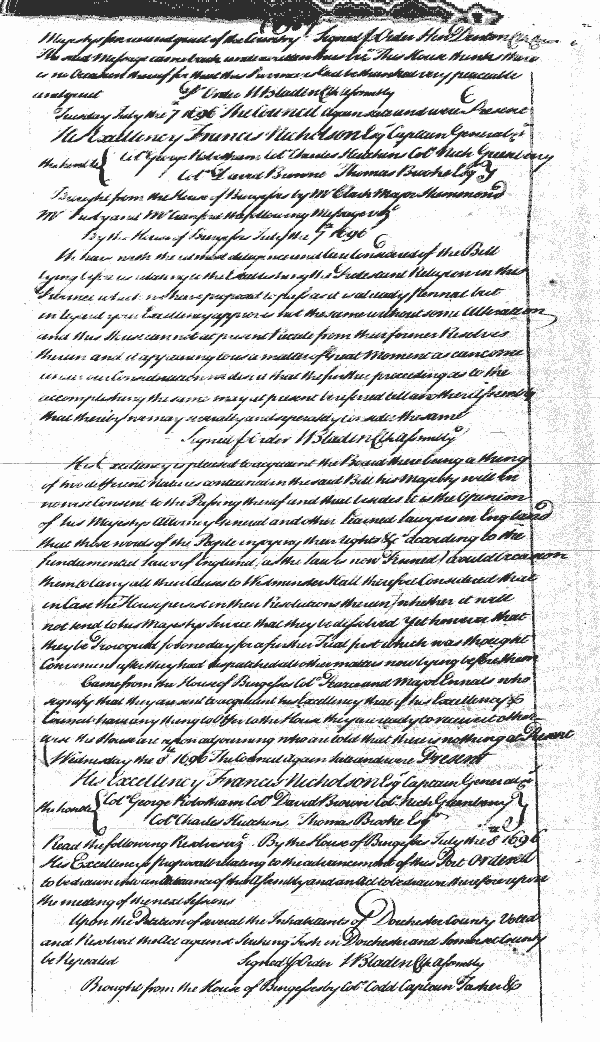 Majestys for ever and good of the Country Signed p Order Hen: Denton Clk Coun
The said Message came back and as written thus vizt This House thinks there
is no Occasion thereof for that this Province hath been thanked very peaceable
and good p Order W Bladen Clk Assembly
Tuesday July the 7th 1696 The Council again sate and were Present
His Excellency Francis Nicholson Esqr Captain General &c
the honble { Colo George Robotham Colo Charles Hutchins Colo Nich Greenbery
Colo David Browne Thomas Brooke Esqr }
Brought from the House of Burgesses by Mr Clark Major Hammond
Mr and Mr the following Message vizt
By the House of Burgesses July the 7th 1696
We have with the utmost diligence and care Considered of the Bill
lying before us relating to the Establishing the Protestant Religion in this
Province which we have proposed to pass as it is already penned but
in regard your Excellency approves not the same without some Alteration
and this House cannot at present Recede from their former Resolves
therein and it appearing to us a matter of great Moment as can come
under our Consideration we desire that the further proceeding as to the
accomplishing the same may at present be referred till another Assembly
that thereby we may severally and seperately Consider the same
Signed p Order W Bladen Clk Assembly
His Excellency is pleased to acquaint the Board there being a thing
of two different Natures contained in the said Bill his Majesty will in
no wise Consent to the Passing thereof and that besides it is the Opinion
of his Majestys Attorney General and other Learned Lawyers in England
that those words of the People enjoying their rights &c according to the
fundamental Laws of England (as the law is now Penned) would occasion
them to carry all their Causes to Westminster Hall therefore Considered that
in Case the House persist in their Resolutions therein, whether it will
not tend to his Majestys Service that they be dissolved Yet however that
they be Prorogued for one day for a further Trial just which was thought
Convenient after they had dispatched all other matters now lying before them
Came from the House of Burgesses Colo Pearce and Major Ennals who
signify that they are sent to acquaint his Excellency that if his Excellency &
Council have any thing to Offer to the House they are ready to receive it otherwise
the House are upon adjourning who are told that there is nothing at Present
Wednesday the 8th 1696 The Council Again Sate and were Present
His Excellency Francis Nicholson Esqr Captain General &c
the honble { Colo George Robotham Colo David Brown Colo Nich Greenbery
Colo Charles Hutchins, Thomas Brooke Esqr }
Read the following Resolves vizt By the House of Burgesses July the 8th 1696
His Excellencys proposal relating to the advancement of this Port Ordered
to be drawn into an Ordinance of the Assembly and an Act to be drawn therefore upon
the meeting of the next Sessions
Upon the Petition of several the Inhabitants of Dorchester County Voted
and Resolved the Act against Striking Fish in Dorchester and Somerset County
be Repealed Signed p Order W Bladen Clk Assembly
Brought from the House of Burgesses by Colo Codd Captain Tasker &